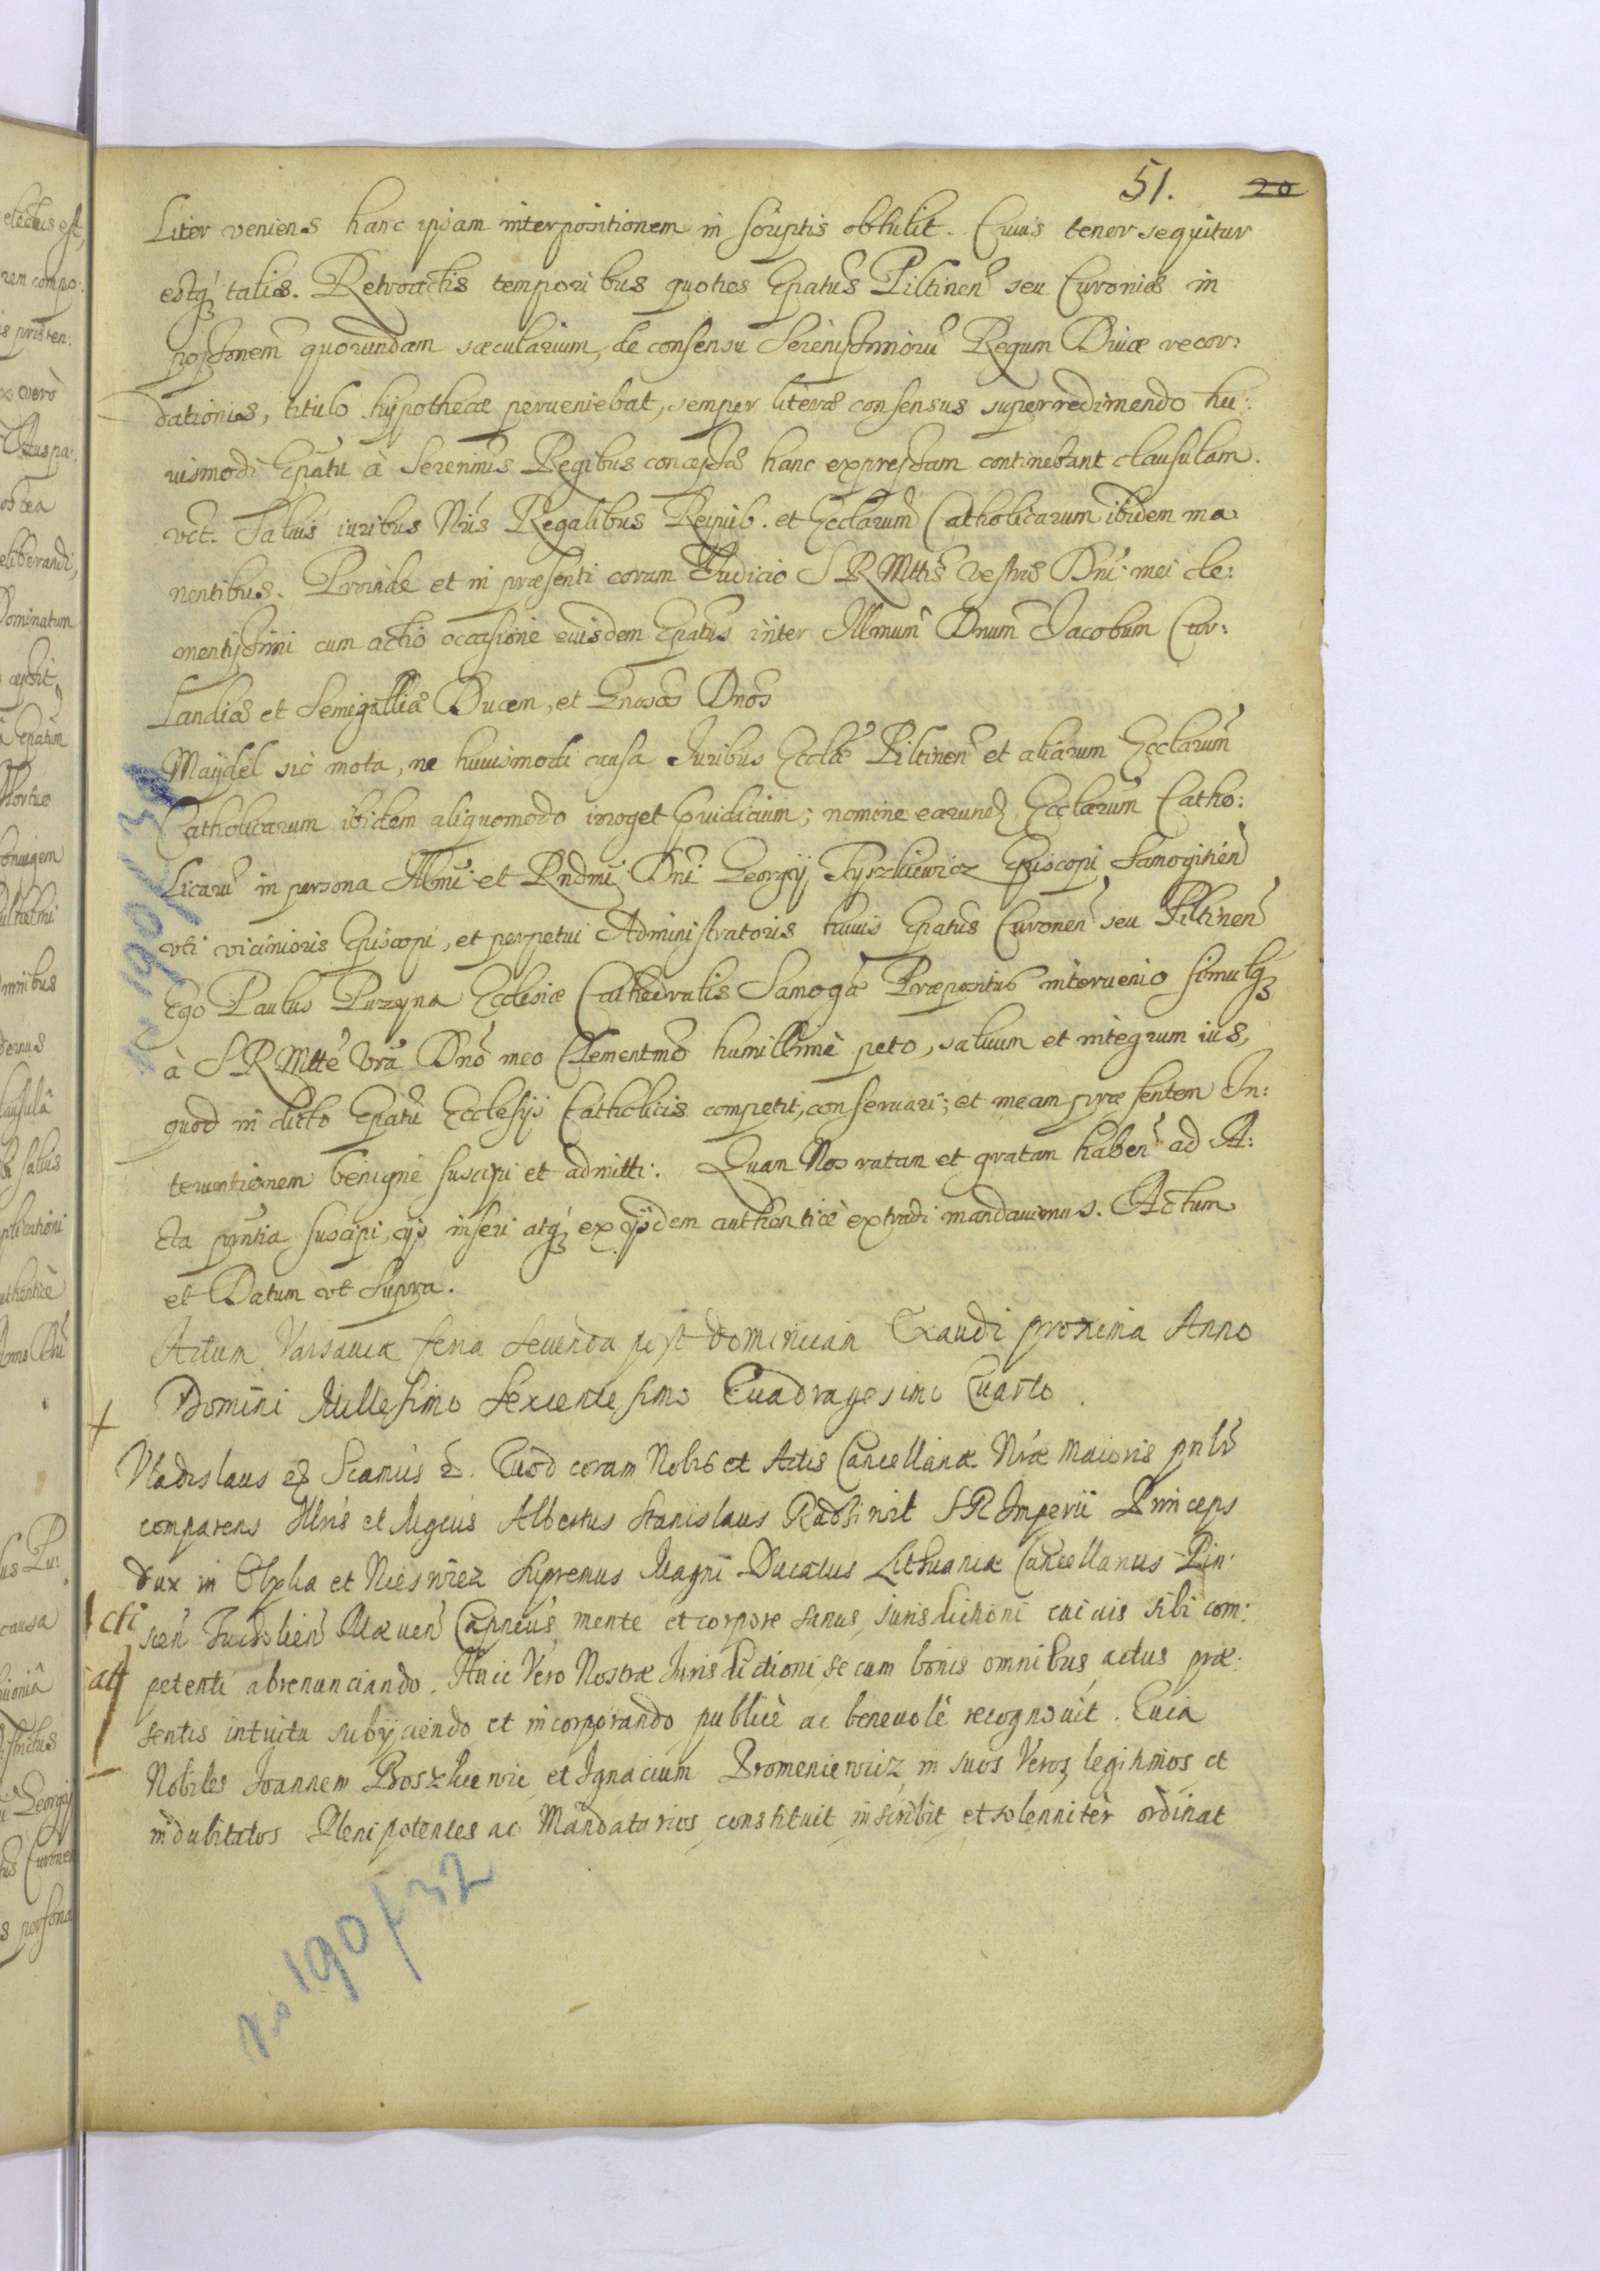 51. 20
Liter veniens hanc ipsam interpositionem in scriptis obtulit. Cuius tenor sequitur
estq́ talis. Retroactis temporibus quoties Epatus Piltinen seu Curoniæ in
possionem quorundam sæcularium, de consensu Serenissimorũ Regum Diuæ recor:
dationis, titulo hypothecæ perueniebat, semper literæ consensus super redimendo hu:
iusmodi Epatu à Serenmis Regibus concessæ hanc expressam continebant clausulam.
vt. Saluis iuribus Nris Regalibus Reipub. et Ecclarum Catholicarum ibidem ma
nentibus. Proinde et in præsenti coram Judicio S R Mttis Vestræ Dni mei cle:
mentissimi cum actio occasione euisdem Epatus inter Illmum Dnum Jacobum Cur:
landiæ et Semigalliæ Ducem, et Gnosos Dnos
Maydel sit mota, ne huiusmodi causa Iuribus Ecclæ Piltinen et aliarum Ecclarum
Catholicarum ibidem aliquomodo iroget pruidicium; nomine earund Ecclarum Catho:
licarũ in persona Illmi et Rndmi Dni Georgij Tyszkiewicz Episcopi Samogitien
vti vicinioris Episcopi, et perpetui Administratoris huius Epatus Curonen seu Piltinen
Ego Paulus Puzyna Ecclesiæ Cathedralis Samogæ Præpositus interuenio simulq
à S R Mtte Vra Dno meo Clementmo humillimè peto, saluum et integrum ius,
quod in dicto Epatu Ecclesijs Catholicis competit, conseruari; et meam præsentem In:
teruentionem benigne suscipi et admitti. Quam Nos ratam et gratam haben ad A:
cta pntia suscipi, ijs inseri atq́ ex ijsdem authenticè extradi mandauimus. Actum
et Datum vt supra.
Actum Varsauiæ feria secunda post dominicam Exaudi proxima Anno
Domini Millesimo Sexcentesimo Quadragesimo Quarto.
Vladislaus Quod coram Nobis et Actis Cancellariæ Nræ Maioris pnlr
comparens Illris et Mgcus Albertus Stanislaus Radsiwil S R Imperii Princeps
dux in Olyka et Nieswiez Supremus Magni Ducatus Lithuaniæ Cancellarius Pin:
scen Tucholien Capneus, mente et corpore sanus, jurisdictioni cuiuis sibi com:
petenti abrenunciando. Huic Vero Nostræ Jurisdictioni se cum bonis omnibus, actus præ:
sentis intuitu subijciendo et incorporando publicè ac beneuolè recognouit. Quia
Nobiles Joannem Broszkiewic et Ignacium Promeniewicz in suos Veros, legitimos et
indubitatos Plenipotentes ac Mandatarios constituit inscribit et solenniter ordinat
cti
att
no 190 f 32